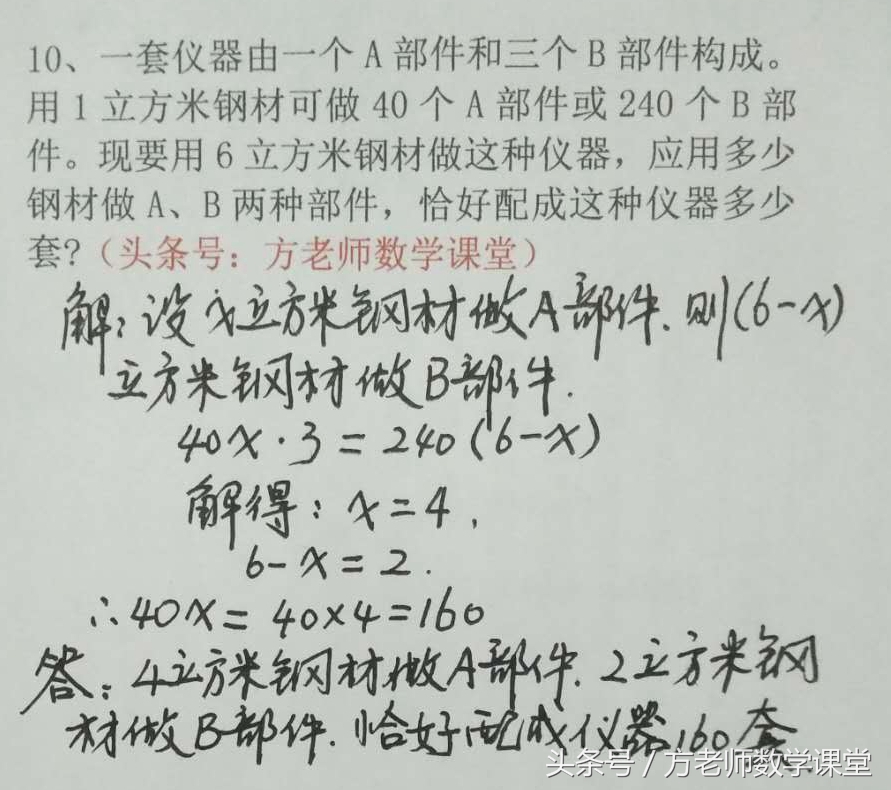 10、一套仪器由一个 A 部件和三个 B 部件构成。
用 1 立方米钢材可做 40 个 A 部件或 240 个 B 部
件。现要用 6 立方米钢材做这种仪器，应用多少
钢材做 A、B 两种部件，恰好配成这种仪器多少
套?（头条号：方老师数学课堂）
解：设 x 立方米钢材做A部件. 则(6-x)
立方米钢材做B部件.
40x·3=240(6-x)
解得：x=4,
6-x=2.
∴40x=40×4=160
答：4立方米钢材做A部件. 2立方米钢
材做B部件. 恰好配成仪器160套
头条号 / 方老师数学课堂